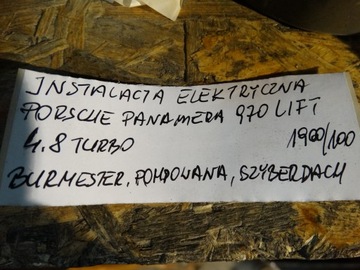 INSTALACJA ELEKTRYCZNA
PORSCHE PANAMERA 970 LIFT
4.8 TURBO 1900/100
BURMESTER, POMPOWANA, SZYBERDACH